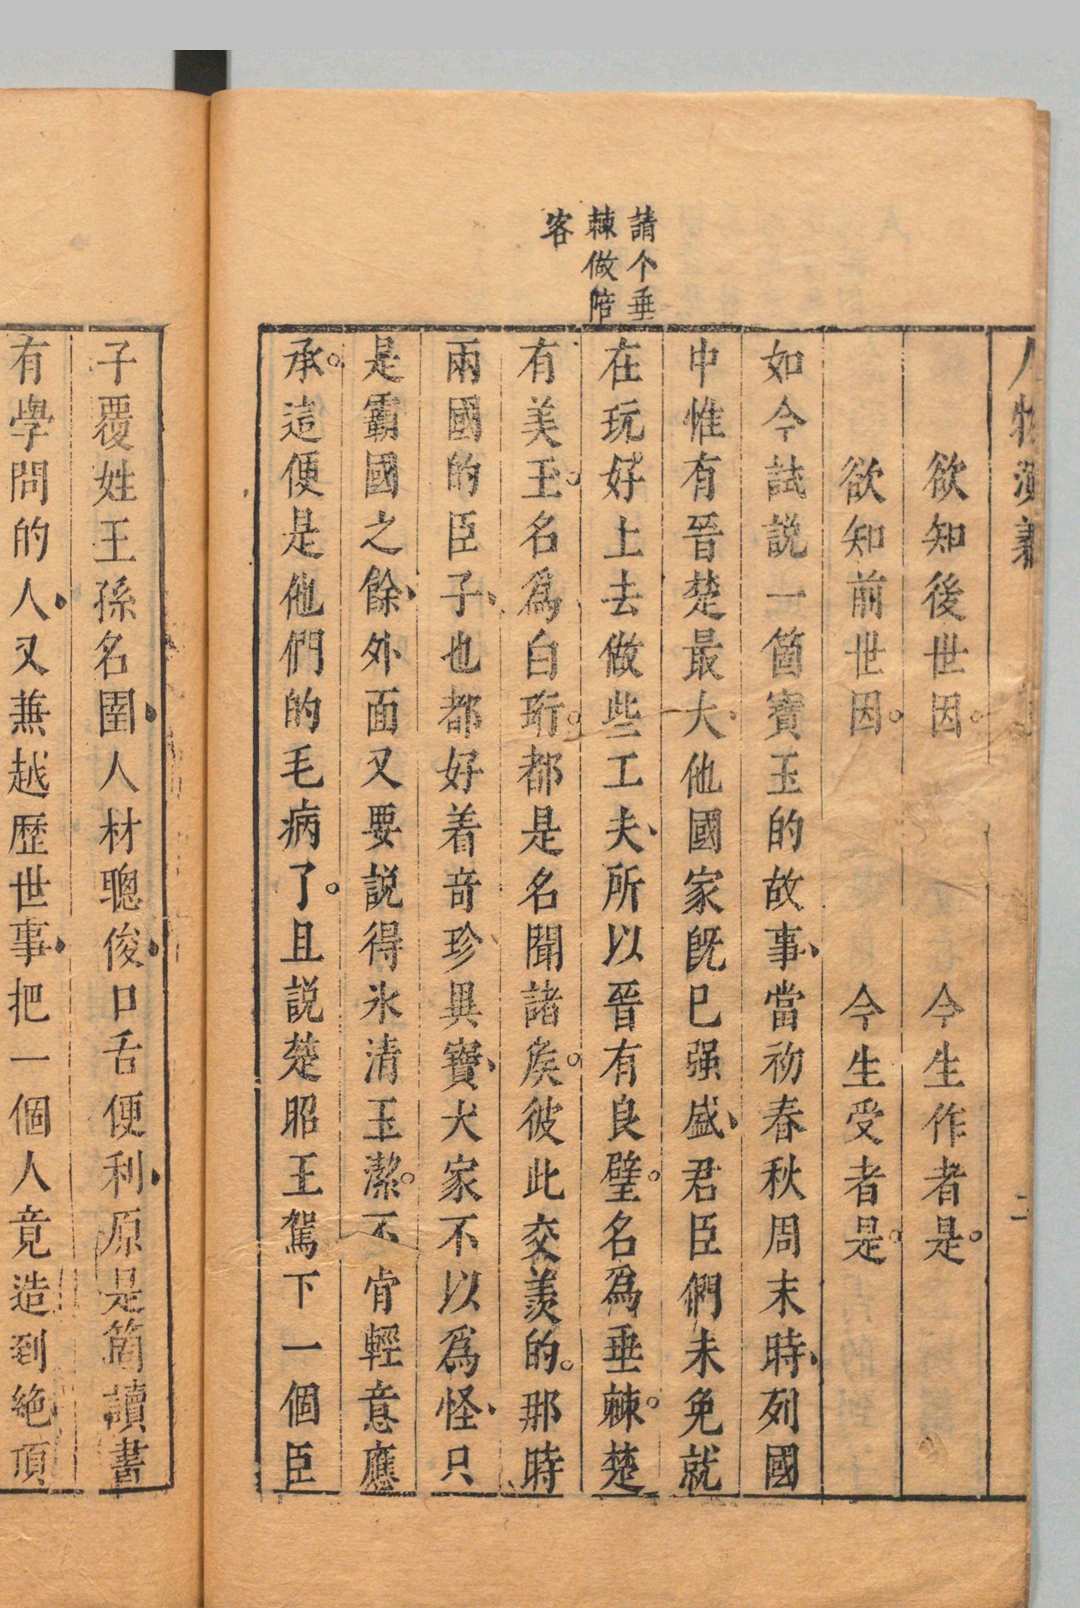 人物演義
二
請个垂
棘做陪
客
欲知後世因。今生作者是。
欲知前世因。今生受者是。
如今試說一箇寶玉的故事、當初春秋周末時、列國
中惟有晉楚最大、他國家既已强盛、君臣們未免就
在玩好上去做些工夫、所以晉有良璧。名為垂棘。楚
有美玉。名為白珩。都是名聞諸矦。彼此交羨的。那時
兩國的臣子、也都好着奇珍異寶、大家不以為怪、只
是霸國之餘、外面又要説得氷清玉潔。不肯輕意應
承。這便是他們的毛病了。且説楚昭王駕下一個臣
子覆姓王孫名圉、人材聰俊、口舌便利、原是箇讀書
有學問的人、又兼越歷世事、把一個人竟造到絶頂